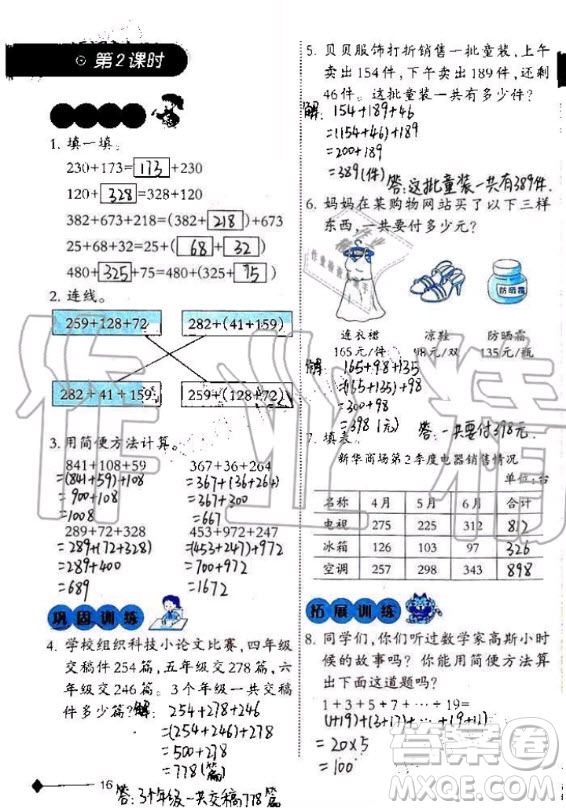 第2课时
1. 填一填。
230+173=173+230
120+328=328+120
382+673+218=(382+218)+673
25+68+32=25+(68+32)
480+325+75=480+(325+75)
2. 连线。
259+128+72
282+(41+159)
282+41+159
259+(128+72)
3. 用简便方法计算。
841+108+59
=(841+59)+108
=900+108
=1008
367+36+264
=367+(36+264)
=367+300
=667
289+72+328
=289+(72+328)
=289+400
=689
453+972+247
=(453+247)+972
=700+972
=1672
巩固训练
4. 学校组织科技小论文比赛,四年级
交稿件254篇,五年级交278篇,六
年级交246篇。3个年级一共交稿
件多少篇?
解: 254+278+246
=(254+246)+278
=500+278
=778(篇)
答:3个年级一共交稿778篇
16
5. 贝贝服饰打折销售一批童装,上午
卖出154件,下午卖出189件,还剩
46件。这批童装一共有多少件?
解: 154+189+46
=(154+46)+189
=200+189
=389(件)
答:这批童装一共有389件.
6. 妈妈在某购物网站买了以下三样
东西,一共要付多少元?
防晒霜
连衣裙 凉鞋 防晒霜
165元/件 98元/双 135元/瓶
解 165+98+135
=(165+135)+98
=300+98
=398(元)
答:一共要付398元.
7. 填表。
新华商场第2季度电器销售情况
单位:台
名称 4月 5月 6月 合计
电视 275 225 312 812
冰箱 126 103 97 326
空调 257 298 343 898
拓展训练
8. 同学们,你们听过数学家高斯小时
候的故事吗?你能用简便方法算
出下面这道题吗?
1+3+5+7+⋯+19=
(1+19)+(3+17)+⋯+(9+11)
=20×5
=100
作业精
作业精灵
答案圈
MXQE.COM